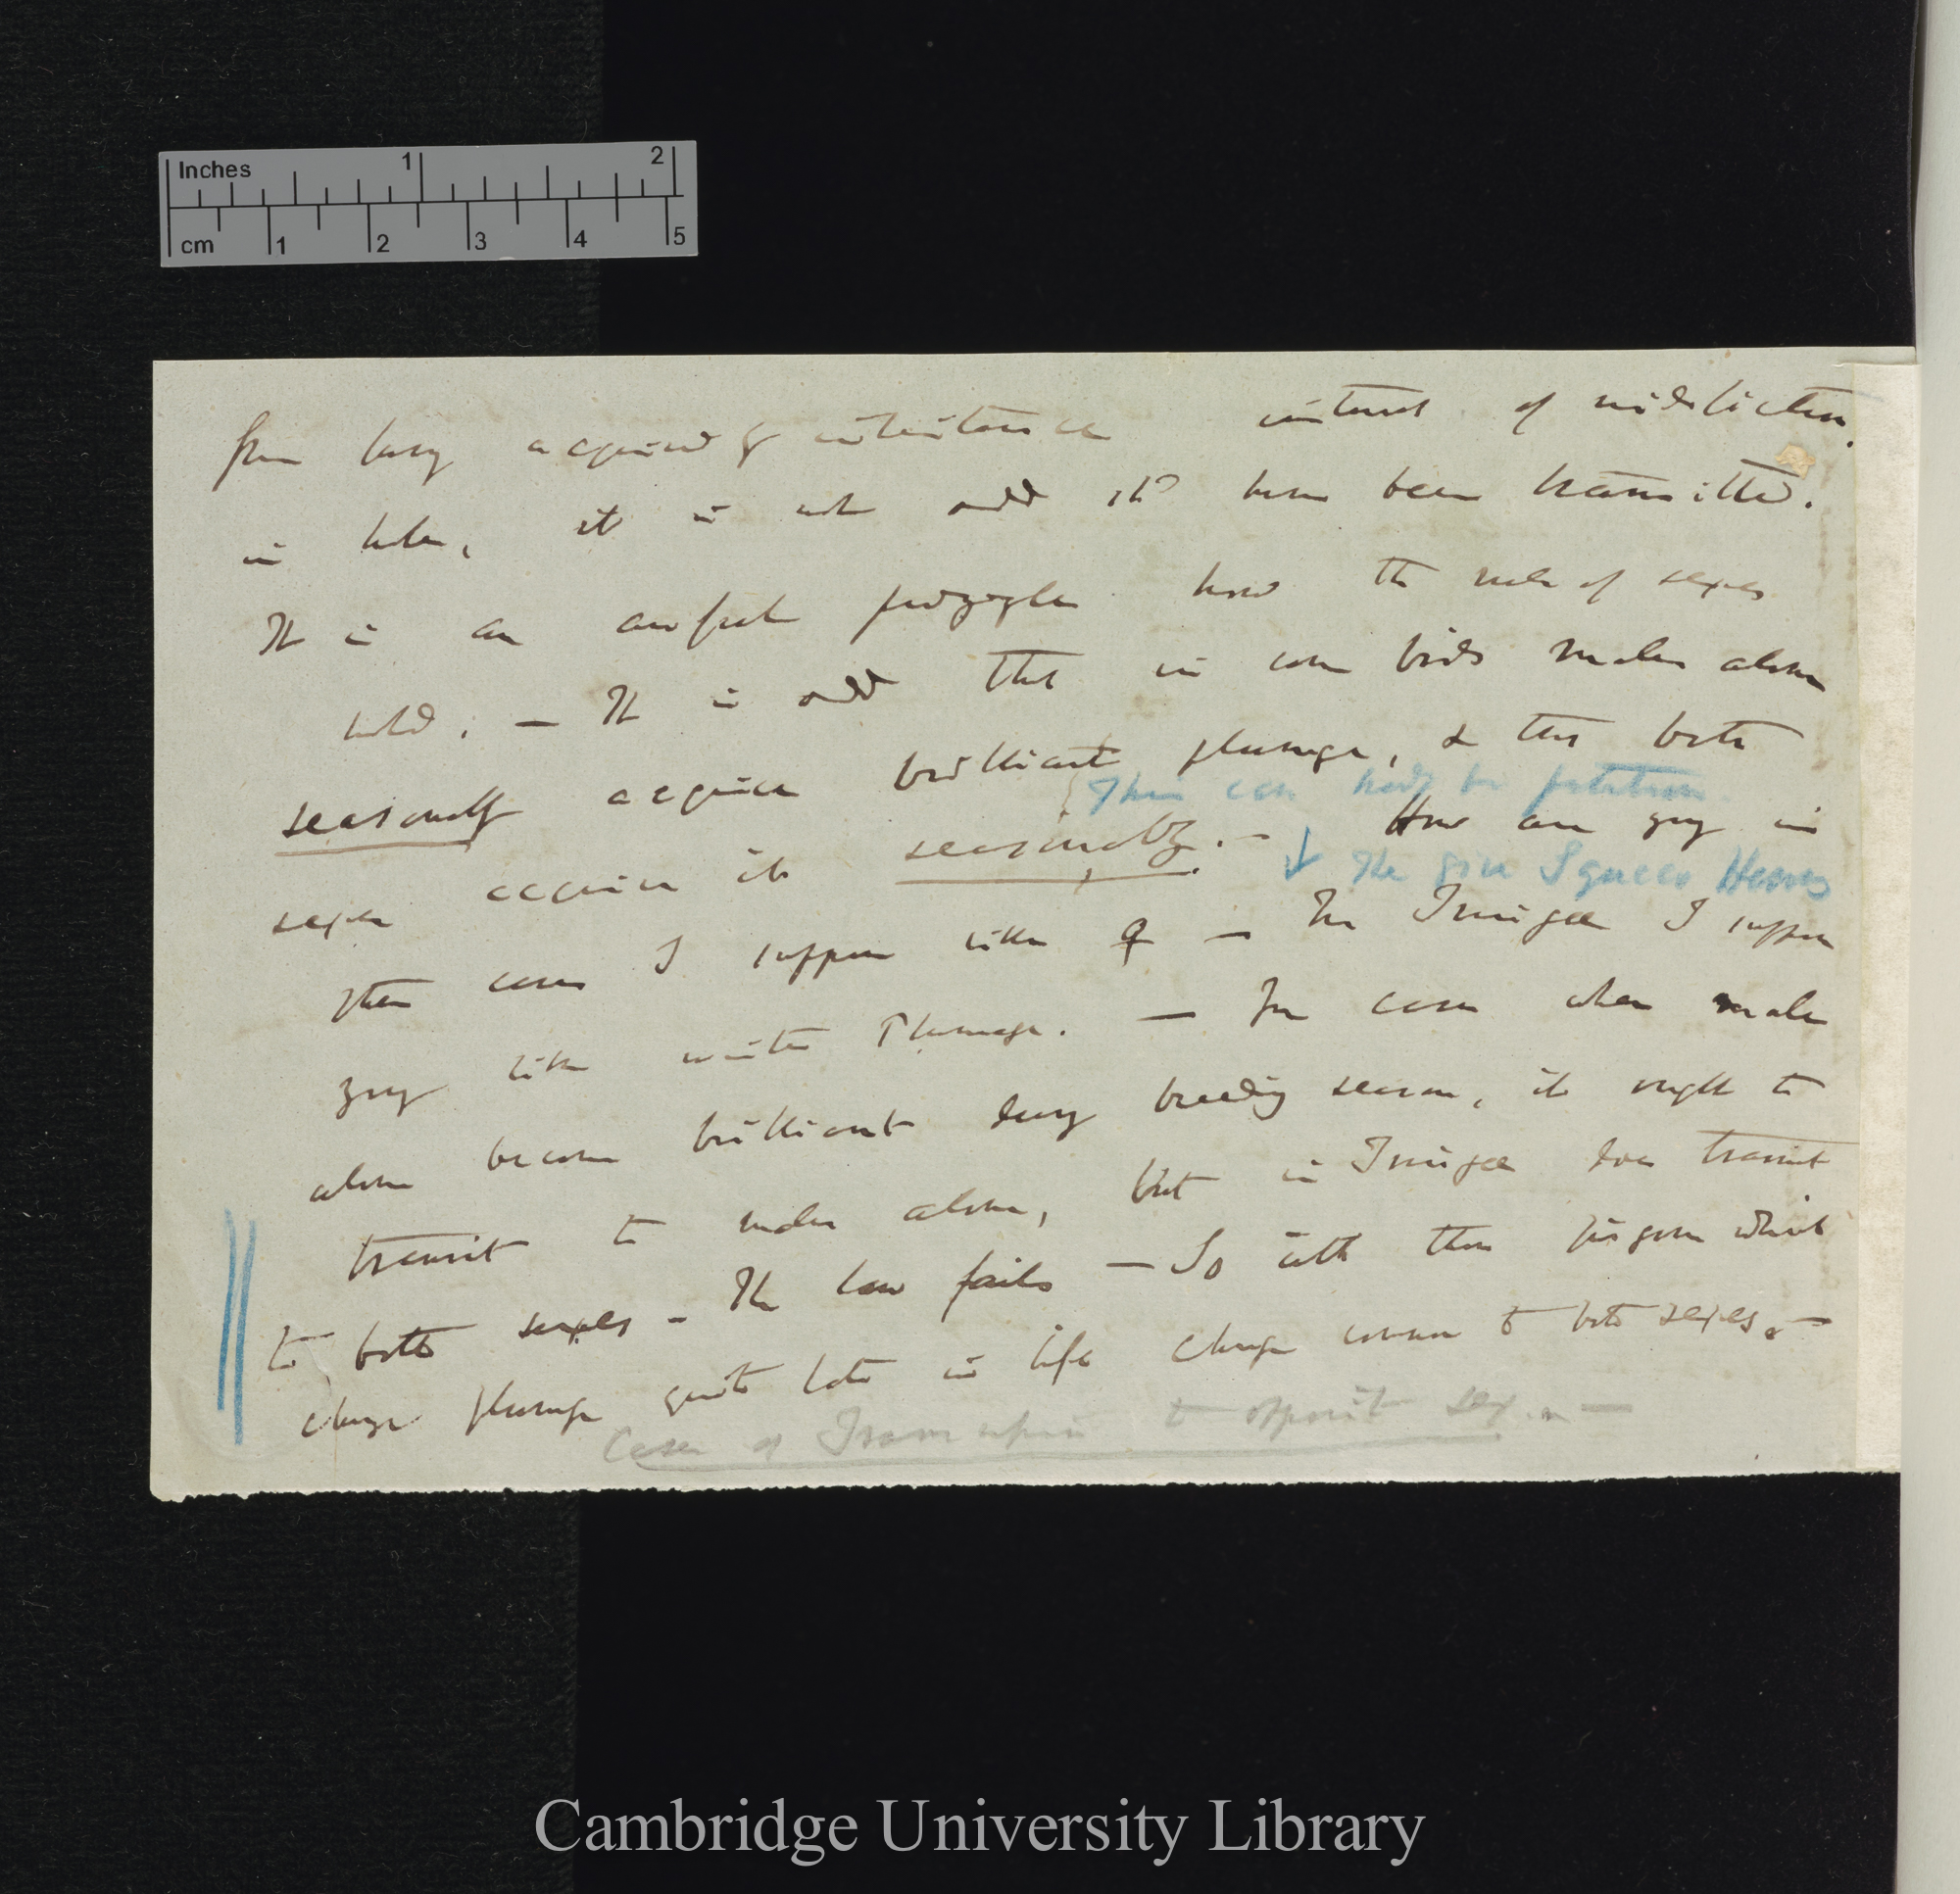 Inches 1 2
cm 1 2 3 4 5
from being acquired by inheritance instinct of nidification
in to be, it is not odd shd have been transmitted.
It is an awful puzzle how the rule of sexes
hold. — It is odd that in some birds males alone
seasonally acquire brilliant plumage, & that both
This can hardly be
sexes acquire it seasonally. — How are young in
↓ The given Squacco Herons
these cases I suppose like ♀ — In Tringa I suppose
young like winter Plumage. — In cases when male
alone become brilliant during breeding season, it ought to
transmit to males alone, but in Tringa does transmit
to both sexes — The law fails — So with those pigeons which
change plumage quite late in life change common to both sexes. —
Cases of Transmission to opposite sex. —
Cambridge University Library